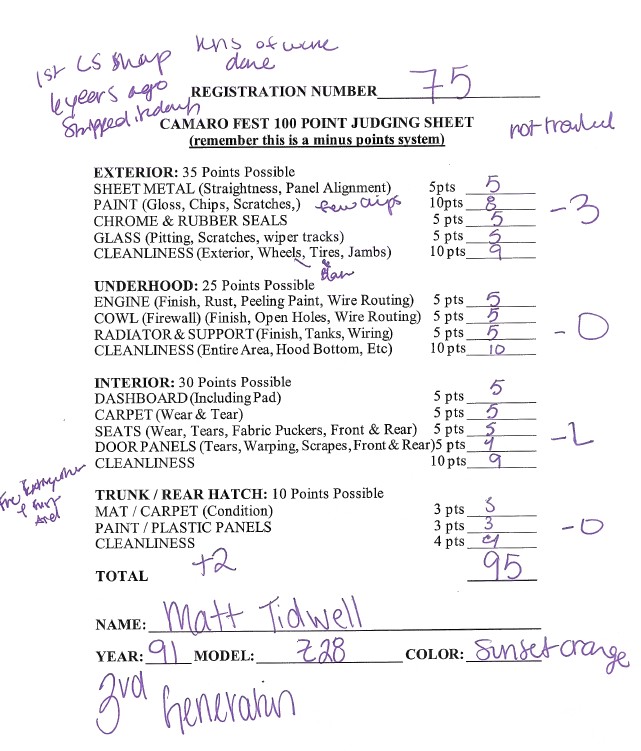 1st LS swap
kns of work
done
6 years ago
stripped it down
REGISTRATION NUMBER 75
CAMARO FEST 100 POINT JUDGING SHEET
(remember this is a minus points system)
not
EXTERIOR: 35 Points Possible
SHEET METAL (Straightness, Panel Alignment) 5pts 5
PAINT (Gloss, Chips, Scratches,) few chips 10pts 8
CHROME & RUBBER SEALS 5 pts 5
-3
GLASS (Pitting, Scratches, wiper tracks) 5 pts 5
CLEANLINESS (Exterior, Wheels, Tires, Jambs) 10 pts 9
UNDERHOOD: 25 Points Possible
ENGINE (Finish, Rust, Peeling Paint, Wire Routing) 5 pts 5
COWL (Firewall) (Finish, Open Holes, Wire Routing) 5 pts 5
RADIATOR & SUPPORT (Finish, Tanks, Wiring) 5 pts 5
-0
CLEANLINESS (Entire Area, Hood Bottom, Etc) 10 pts 10
INTERIOR: 30 Points Possible
DASHBOARD (Including Pad) 5 pts 5
CARPET (Wear & Tear) 5 pts 5
SEATS (Wear, Tears, Fabric Puckers, Front & Rear) 5 pts 5
DOOR PANELS (Tears, Warping, Scrapes, Front & Rear) 5 pts 4
CLEANLINESS 10 pts 9
TRUNK / REAR HATCH: 10 Points Possible
MAT / CARPET (Condition) 3 pts 3
PAINT / PLASTIC PANELS 3 pts 3
-0
CLEANLINESS 4 pts 4
TOTAL +2 95
NAME: Matt Tidwell
YEAR: 91 MODEL: Z28 COLOR: Sunset orange
3rd Generation